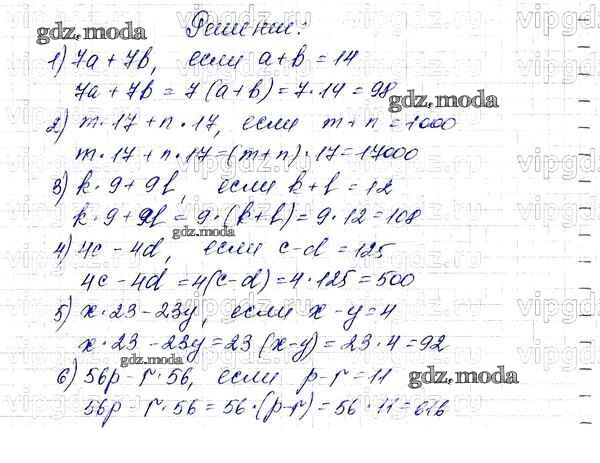 Решение:
gdz.moda
1) 7a + 7b, если a + b = 14
7a + 7b = 7(a + b) = 7 · 14 = 98
gdz.moda
2) m · 17 + n · 17, если m + n = 1000
m · 17 + n · 17 = (m + n) · 17 = 17000
3) k · 9 + 9l, если k + l = 12
k · 9 + 9l = 9 · (k + l) = 9 · 12 = 108
gdz.moda
4) 4c - 4d, если c - d = 125
4c - 4d = 4(c - d) = 4 · 125 = 500
5) x · 23 - 23y, если x - y = 4
x · 23 - 23y = 23(x - y) = 23 · 4 = 92
gdz.moda
6) 56p - r · 56, если p - r = 11
gdz.moda
56p - r · 56 = 56 · (p - r) = 56 · 11 = 616